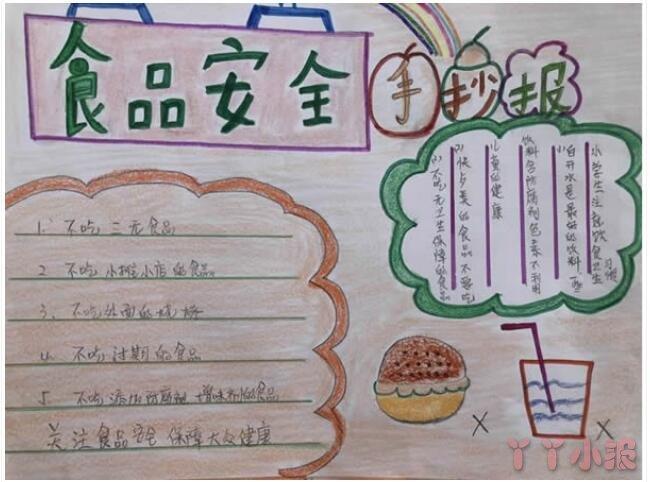 食品安全手抄报
1. 不吃三无食品
2. 不吃小摊小店的食品
3. 不吃外面的烧烤
4. 不吃过期的食品
5. 不吃添加防腐剂 增味剂的食品
关注食品安全 保障大众健康
小学生注意饮食卫生习惯
(1)白开水是最好的饮料 一些
饮料含防腐剂色素不利用
儿童的健康
(2)快歺类的食品不要吃
(3)不吃无卫生保障的食品
X
X
丫丫小报